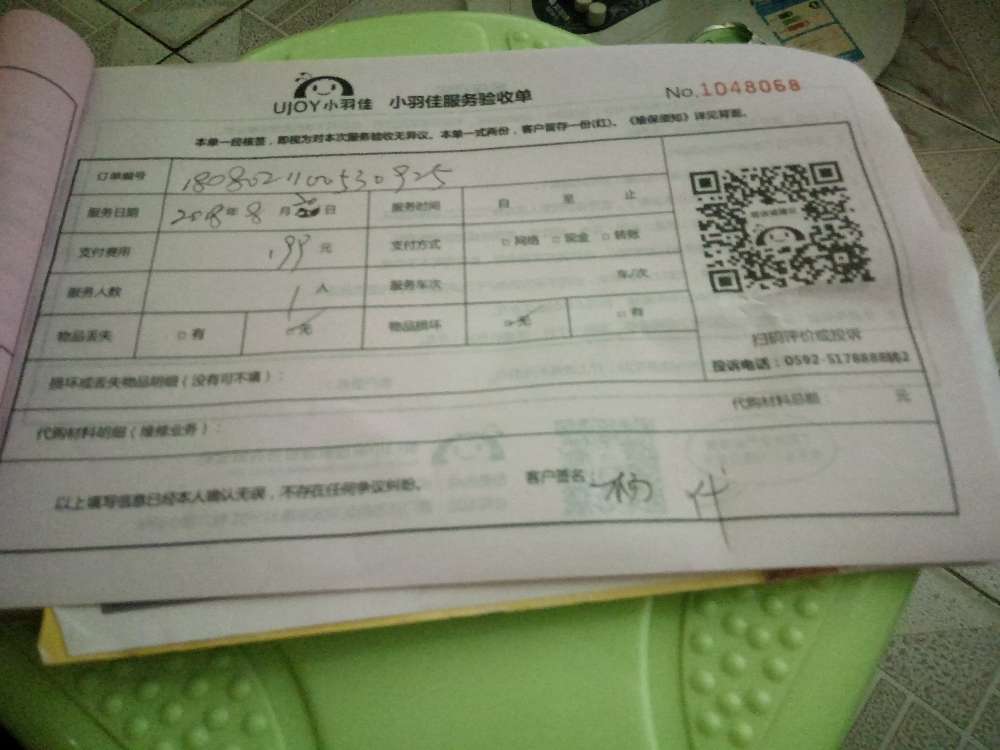 UJOY小羽佳 小羽佳服务验收单 No.1048068
本单一经核签，即视为对本次服务验收无异议。本单一式两份，客户留存一份(红)。《维保须知》详见背面。
订单编号 1808021100530925
服务日期 2018年8月30日 服务时间 自 至 止
支付费用 199元 支付方式 □网络 □现金 □转账
服务人数 1人 服务车次 车/次
物品丢失 □有 □无 物品损坏 □无 □有
扫码评价或投诉
投诉电话：0592-5178888转2
损坏或丢失物品明细（没有可不填）：
代购材料明细（维修业务）： 代购材料总额： 元
以上填写信息已经本人确认无误，不存在任何争议纠纷。 客户签名：杨